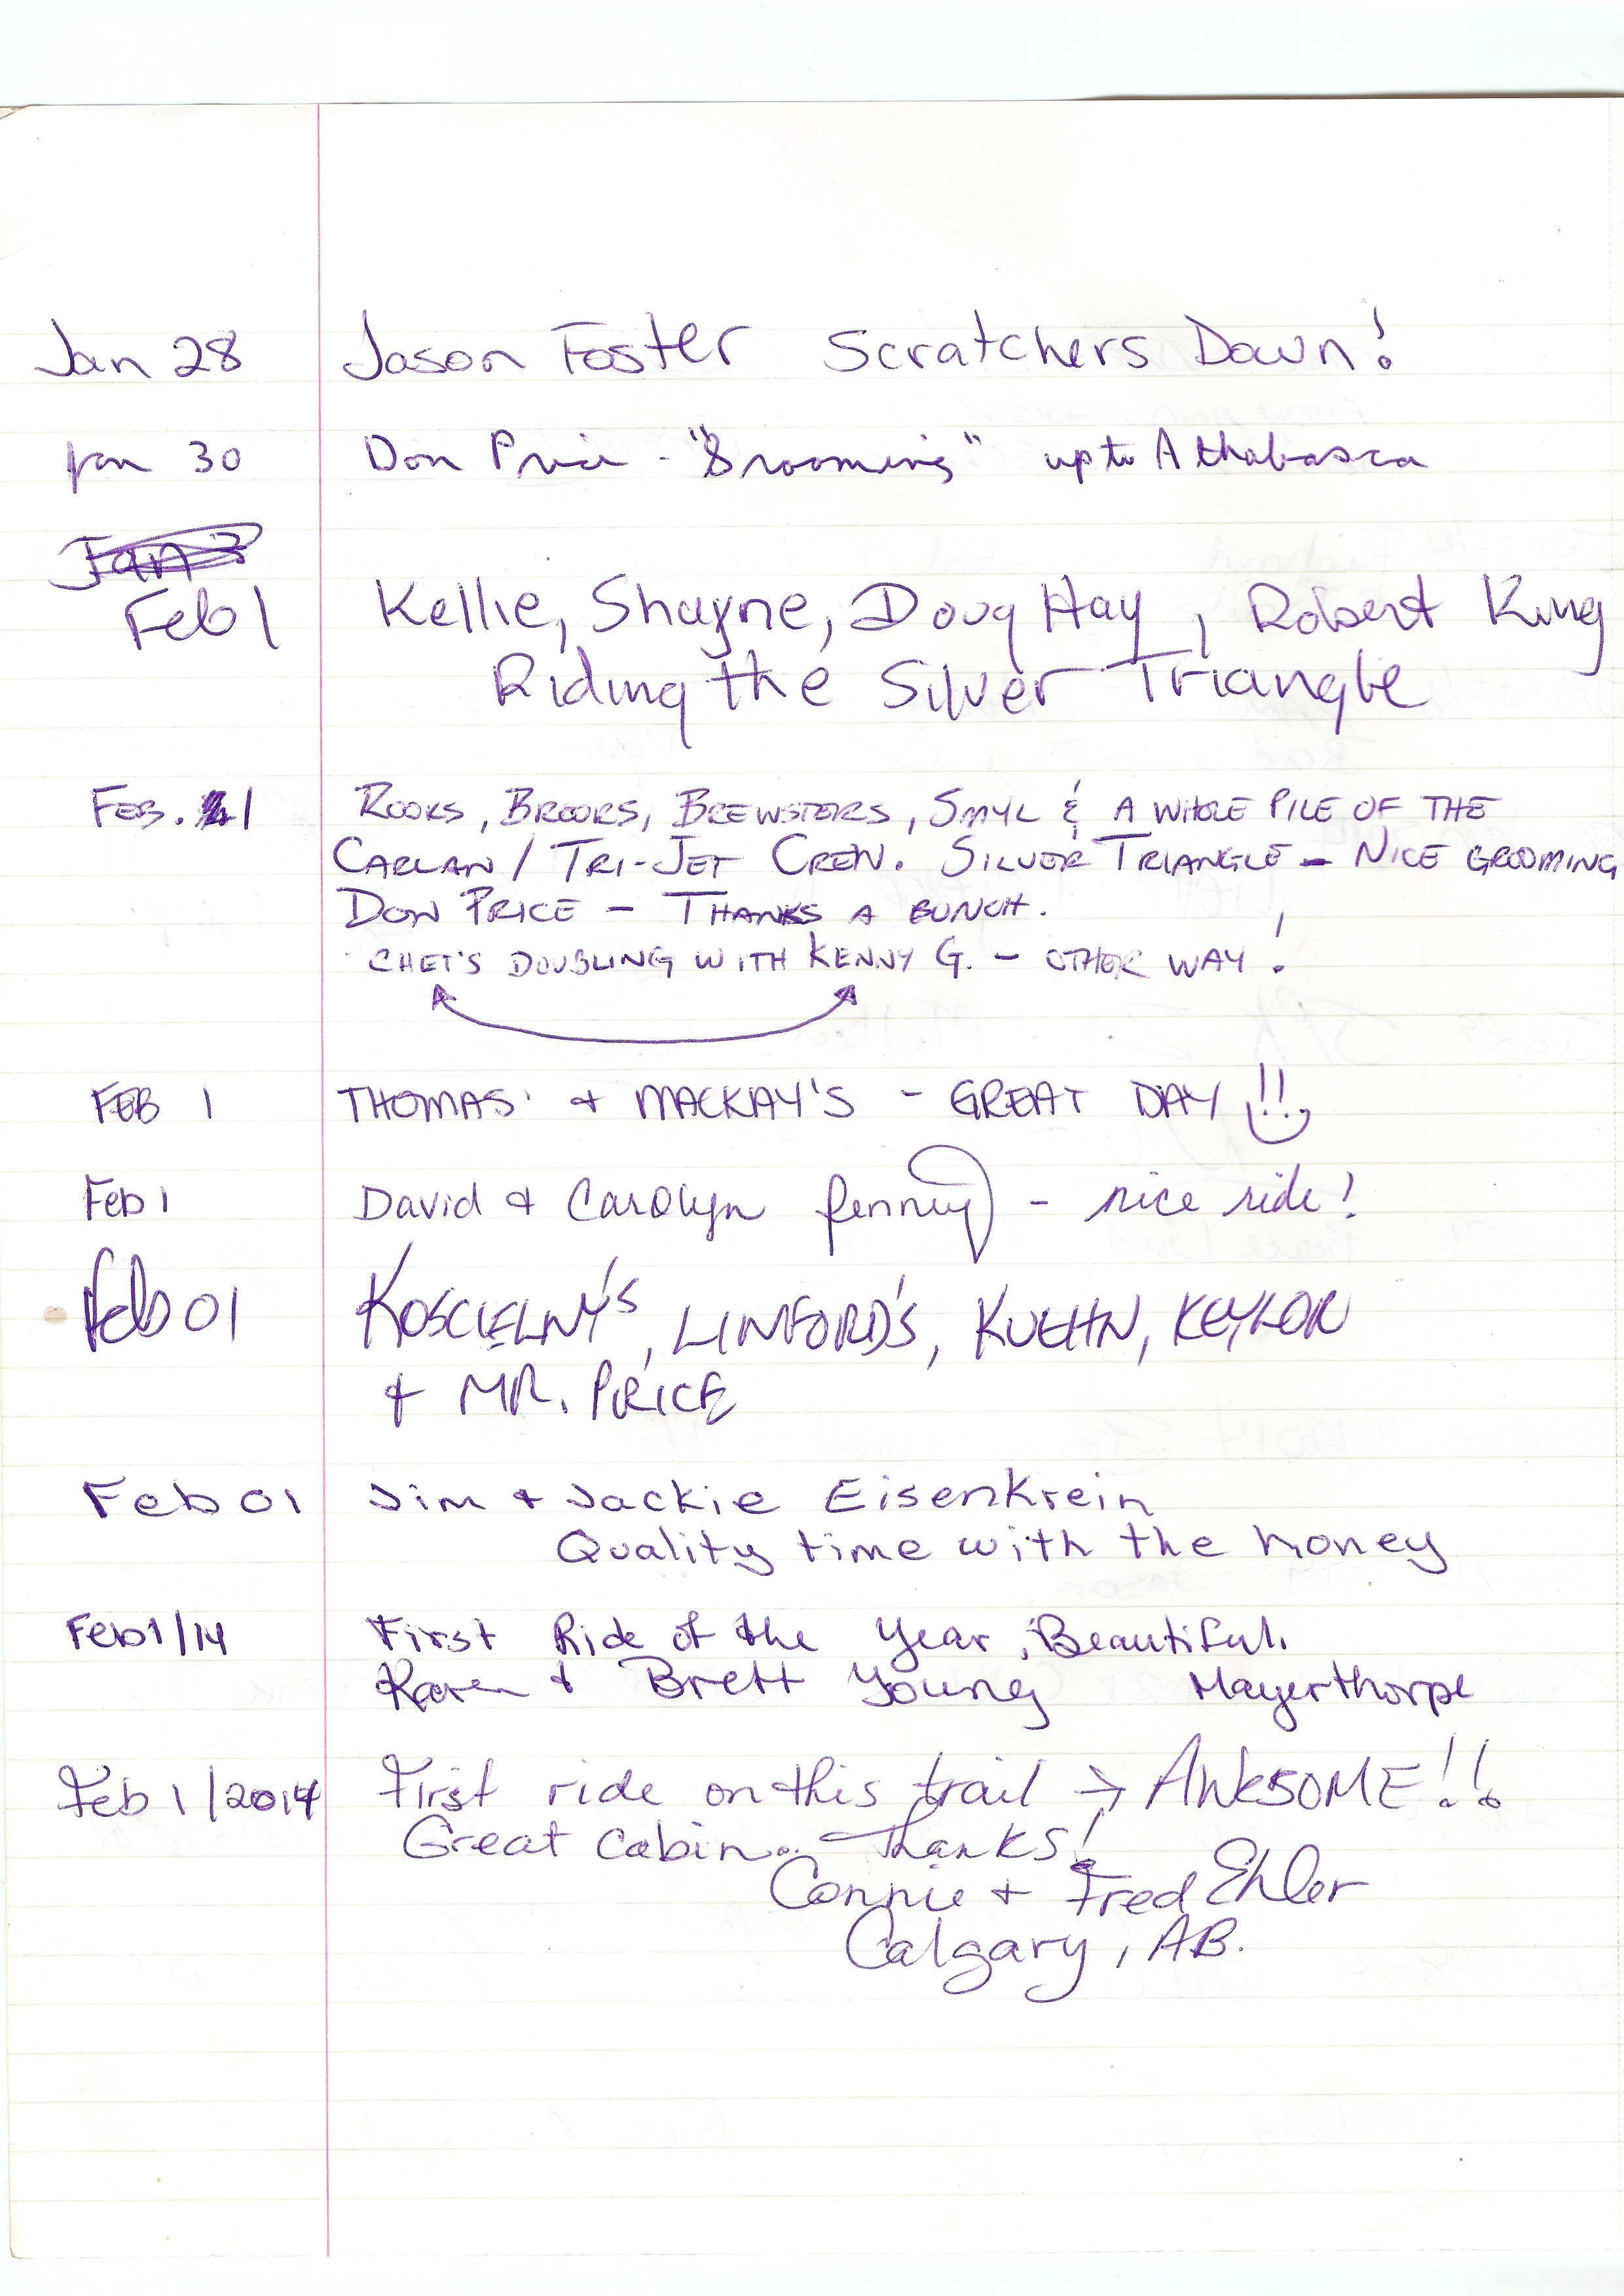 Jan 28 Jason Foster Scratchers Down!
Jan 30 Don Price - "Grooming" up to Athabasca
Jan 3
Feb 1 Kellie, Shayne, Doug Hay, Robert King
Riding the Silver Triangle
FEB. 1 ROOKS, BROOKS, BREWSTERS, SMYL & A WHOLE PILE OF THE
CARLAN / TRI-JET CREW. SILVER TRIANGLE - NICE GROOMING
DON PRICE - THANKS A BUNCH.
CHET'S DOUBLING WITH KENNY G. - OTHER WAY!
FEB 1 THOMAS' + MACKAY'S - GREAT DAY!!
Feb 1 David + Carolyn Penney - nice ride!
Feb 01 KOSCIELNY'S, LINFORD'S, KUEHN, KEYLOR
+ MR. PRICE
Feb 01 Jim + Jackie Eisenkrein
Quality time with the honey
Feb 1/14 First Ride of the Year, Beautiful.
Karen + Brett Young Mayerthorpe
Feb 1/2014 First ride on this trail → AWESOME!!
Great cabin.. Thanks!
Connie + Fred Ehler
Calgary, AB.